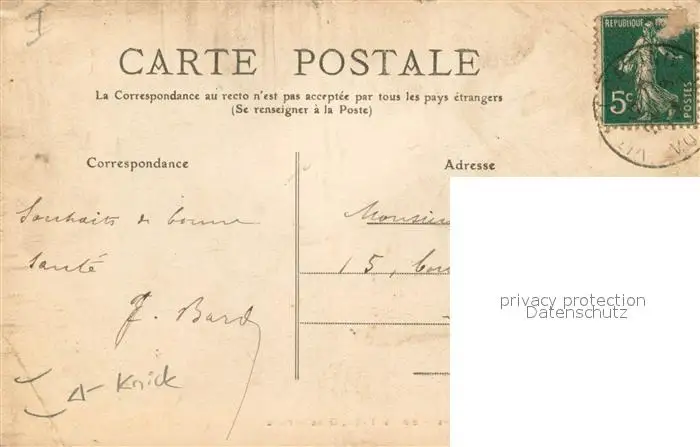 I
CARTE POSTALE
La Correspondance au recto n'est pas acceptée par tous les pays étrangers
(Se renseigner à la Poste)
REPUBLIQUE
5c
POSTES
Correspondance
Adresse
Souhaits de bonne
santé
F. Bard
Knick
Monsieur
15,
privacy protection
Datenschutz